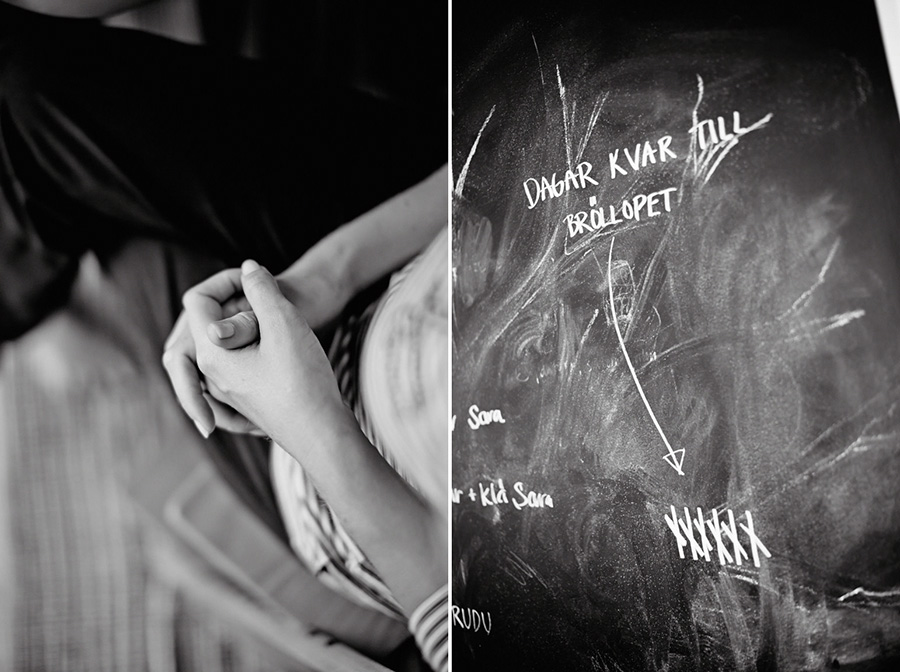 DAGAR KVAR TILL
BRÖLLOPET
Sara
+ klä Sara
XXXXXX
RUDU